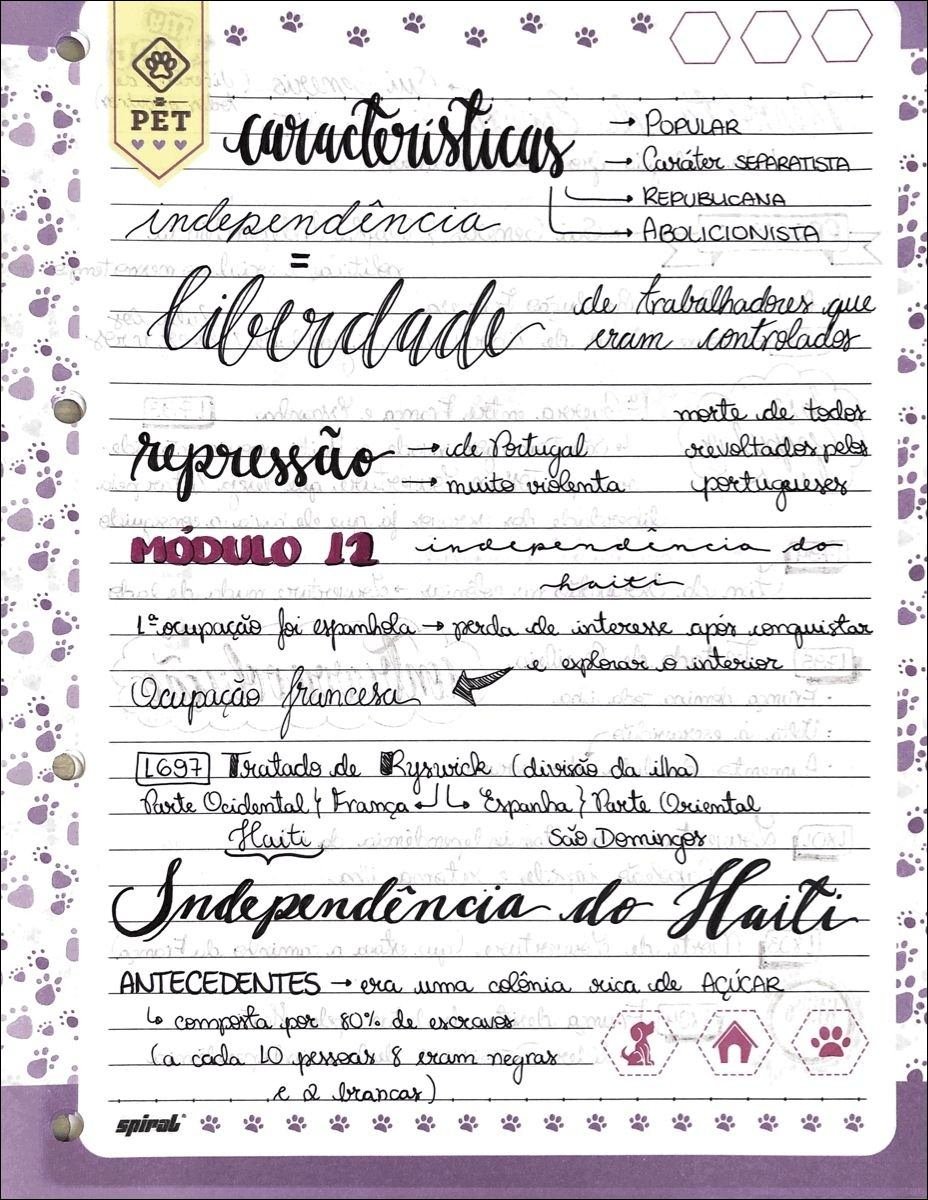 PET
características → POPULAR
→ Caráter SEPARATISTA
→ REPUBLICANA
→ ABOLICIONISTA
independência
=
liberdade de trabalhadores que
eram controlados
repressão → de Portugal
→ muito violenta
morte de todos
revoltados pelos
portugueses
MÓDULO 12 independência do
haiti
1ª ocupação foi espanhola → perda de interesse após conquistar
e explorar o interior
Ocupação francesa
1697 Tratado de Ryswick (divisão da ilha)
Parte Ocidental } França ↲ ↳ Espanha } Parte Oriental
Haiti São Domingos
Independência do Haiti
ANTECEDENTES → era uma colônia rica de AÇÚCAR
↳ composta por 80% de escravos
(a cada 10 pessoas 8 eram negras
e 2 brancas)
spiral